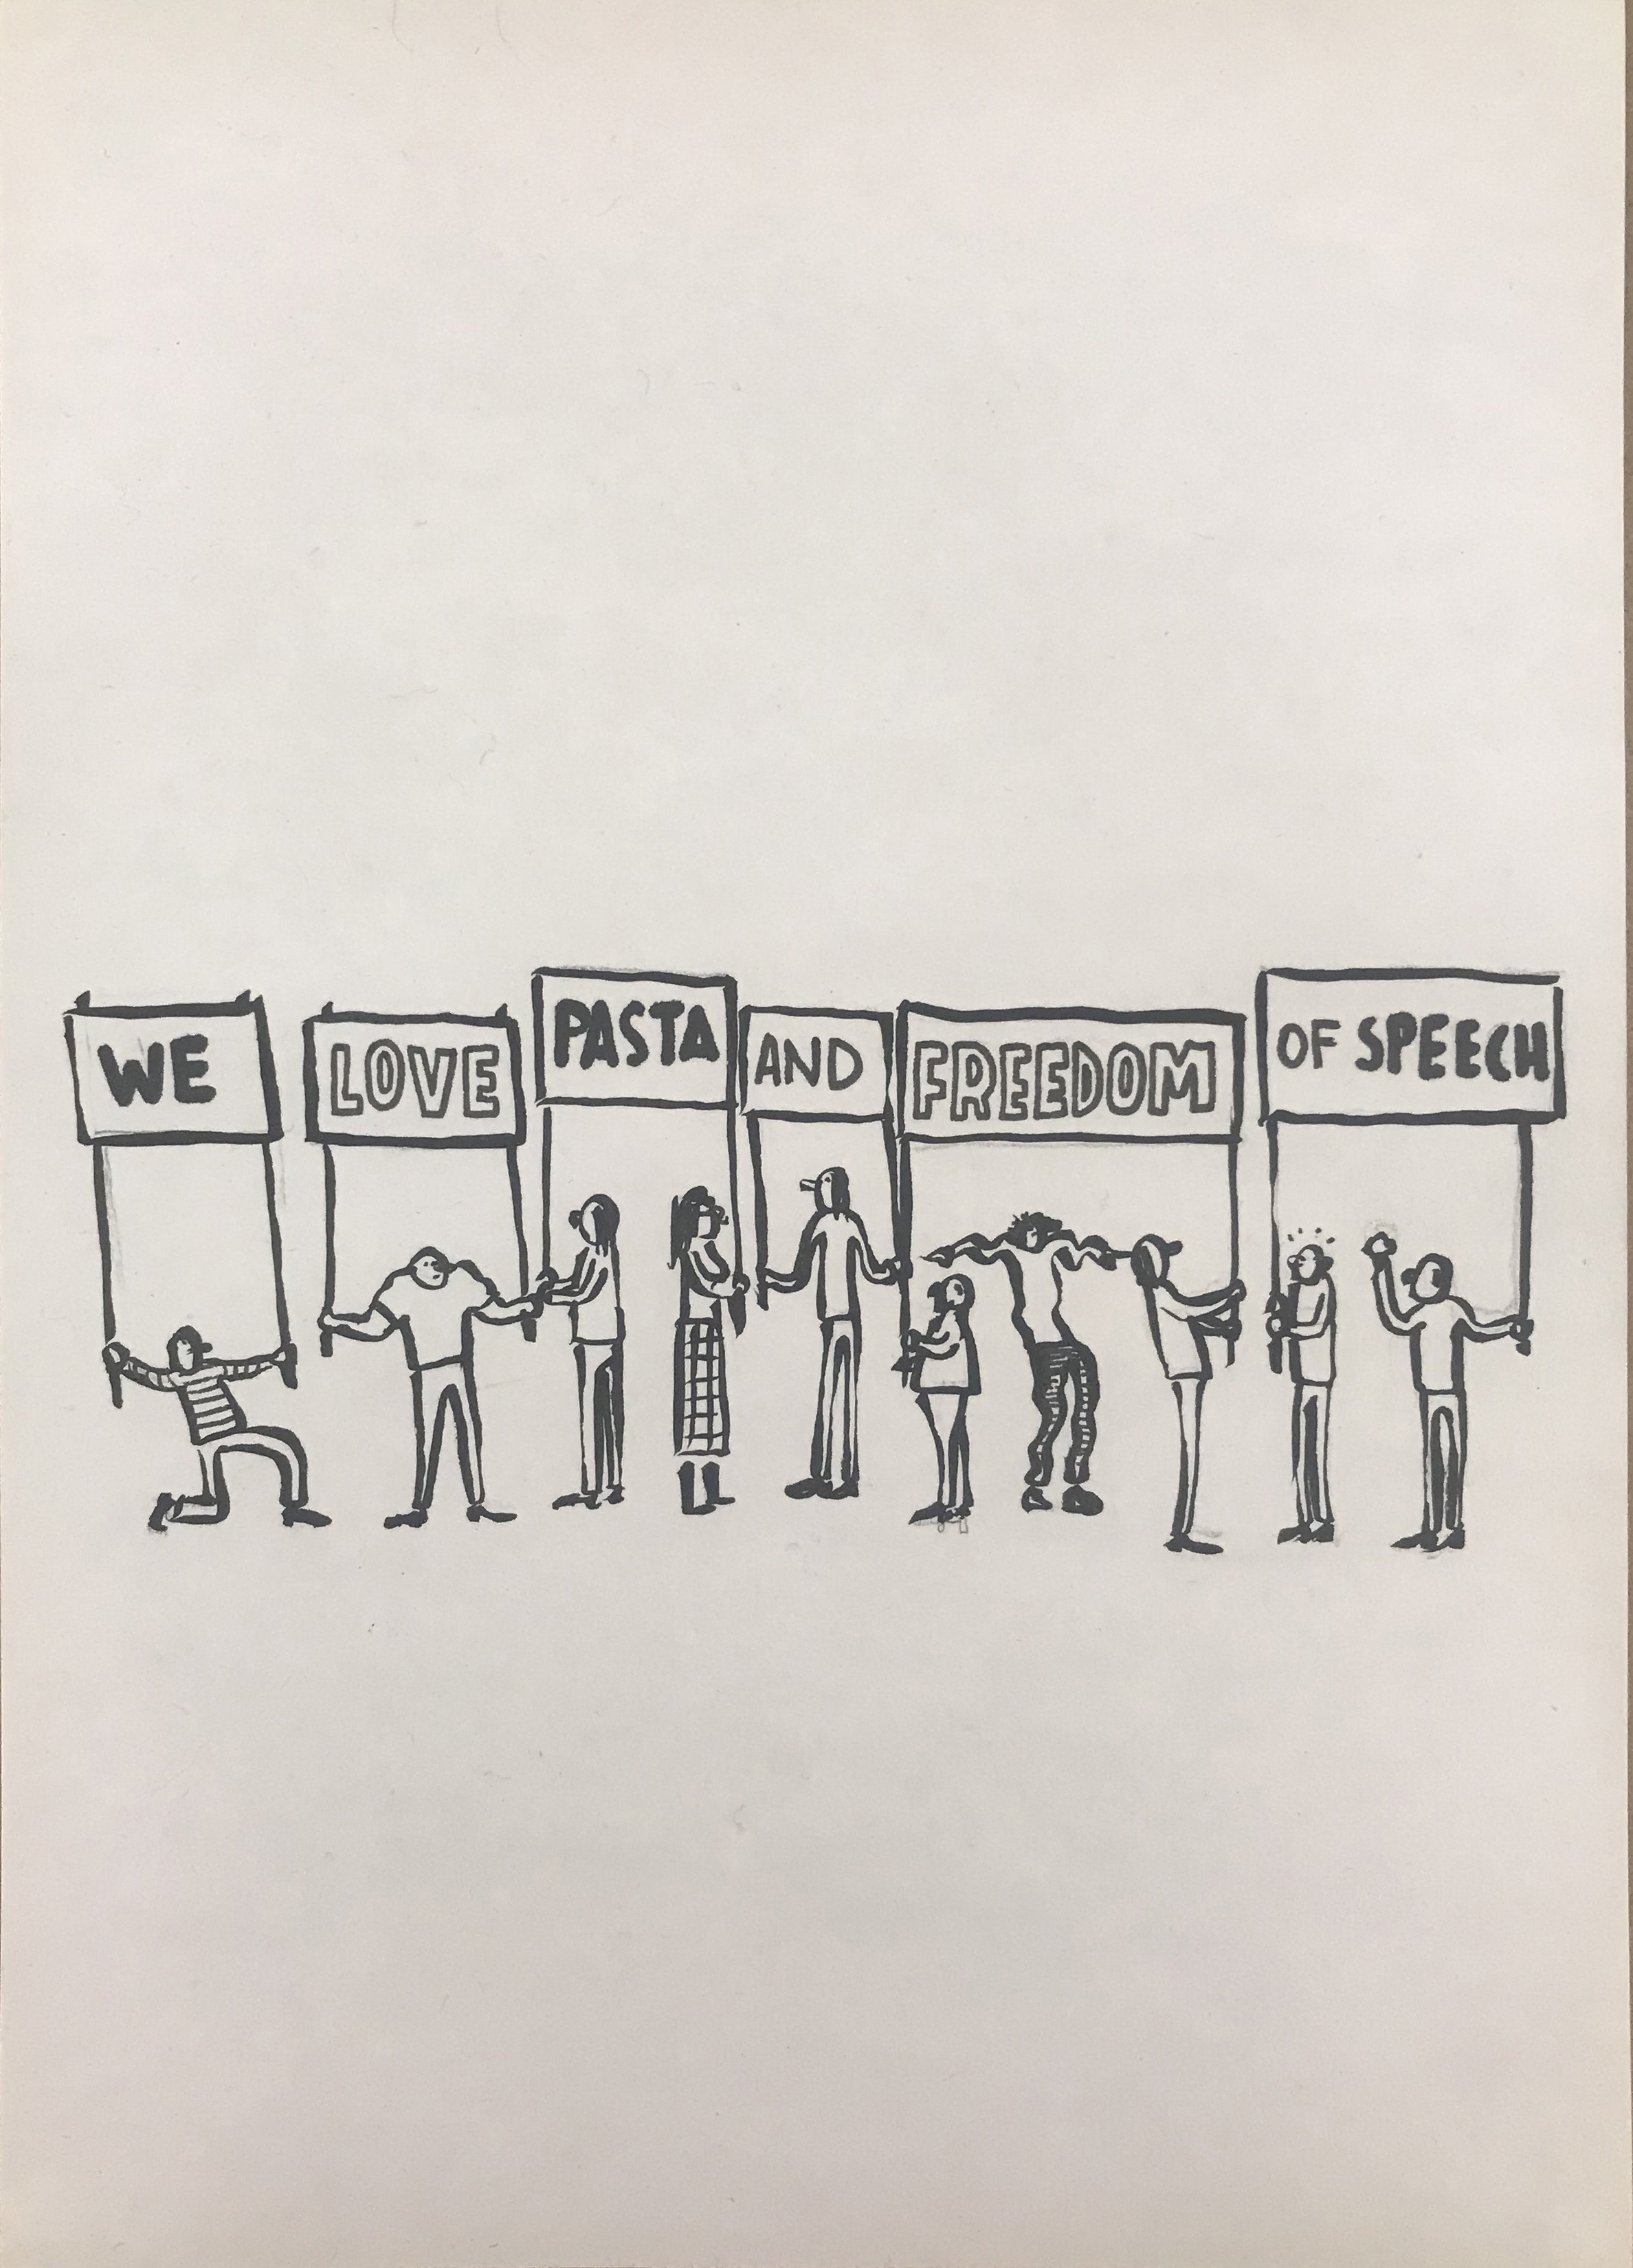 WE
LOVE
PASTA
AND
FREEDOM
OF SPEECH